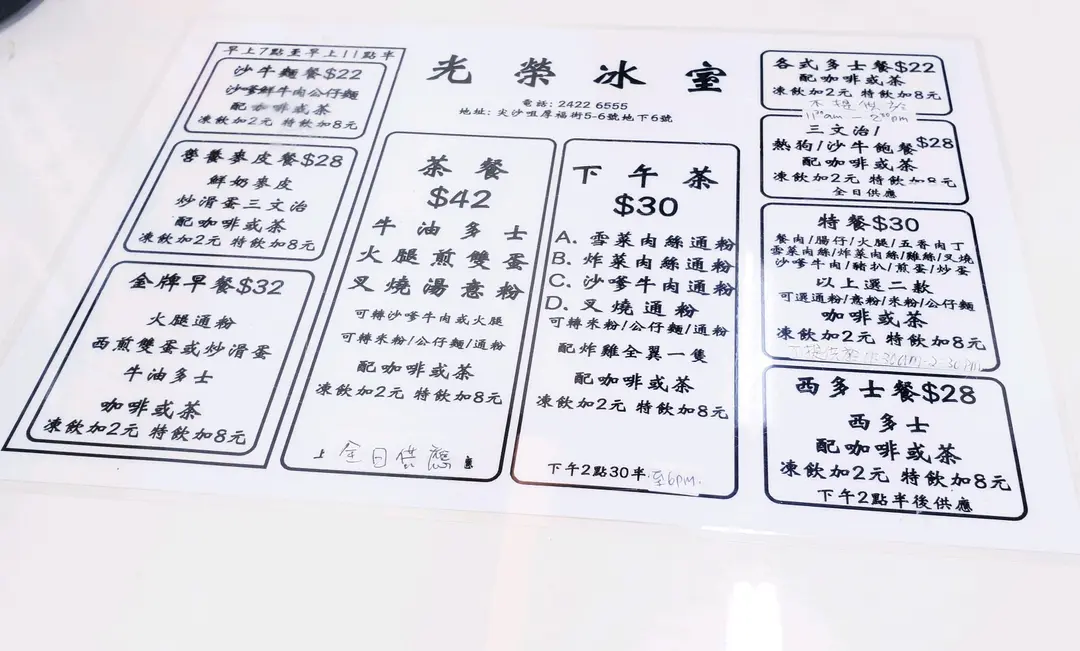 光榮冰室
電話: 2422 6555
地址: 尖沙咀厚福街5-6號地下6號
早上7點至早上11點半
沙牛麵餐$22
沙嗲鮮牛肉公仔麵
配咖啡或茶
凍飲加2元 特飲加8元
營養麥皮餐$28
鮮奶麥皮
炒滑蛋三文治
配咖啡或茶
凍飲加2元 特飲加8元
金牌早餐$32
火腿通粉
西煎雙蛋或炒滑蛋
牛油多士
咖啡或茶
凍飲加2元 特飲加8元
茶餐
$42
牛油多士
火腿煎雙蛋
叉燒湯意粉
可轉沙嗲牛肉或火腿
可轉米粉/公仔麵/通粉
配咖啡或茶
凍飲加2元 特飲加8元
全日供應
下午茶
$30
A. 雪菜肉絲通粉
B. 炸菜肉絲通粉
C. 沙嗲牛肉通粉
D. 叉燒通粉
可轉米粉/公仔麵/通粉
配炸雞全翼一隻
配咖啡或茶
凍飲加2元 特飲加8元
下午2點30半 至6pm.
各式多士餐$22
配咖啡或茶
凍飲加2元 特飲加8元
11³⁰am - 2³⁰pm
三文治/
熱狗/沙牛飽餐$28
配咖啡或茶
凍飲加2元 特飲加8元
全日供應
特餐$30
餐肉/腸仔/火腿/五香肉丁
雪菜肉絲/炸菜肉絲/雞絲/叉燒
沙嗲牛肉/豬扒/煎蛋/炒蛋
以上選二款
可選通粉/意粉/米粉/公仔麵
咖啡或茶
凍飲加2元 特飲加8元
西多士餐$28
西多士
配咖啡或茶
凍飲加2元 特飲加8元
下午2點半後供應